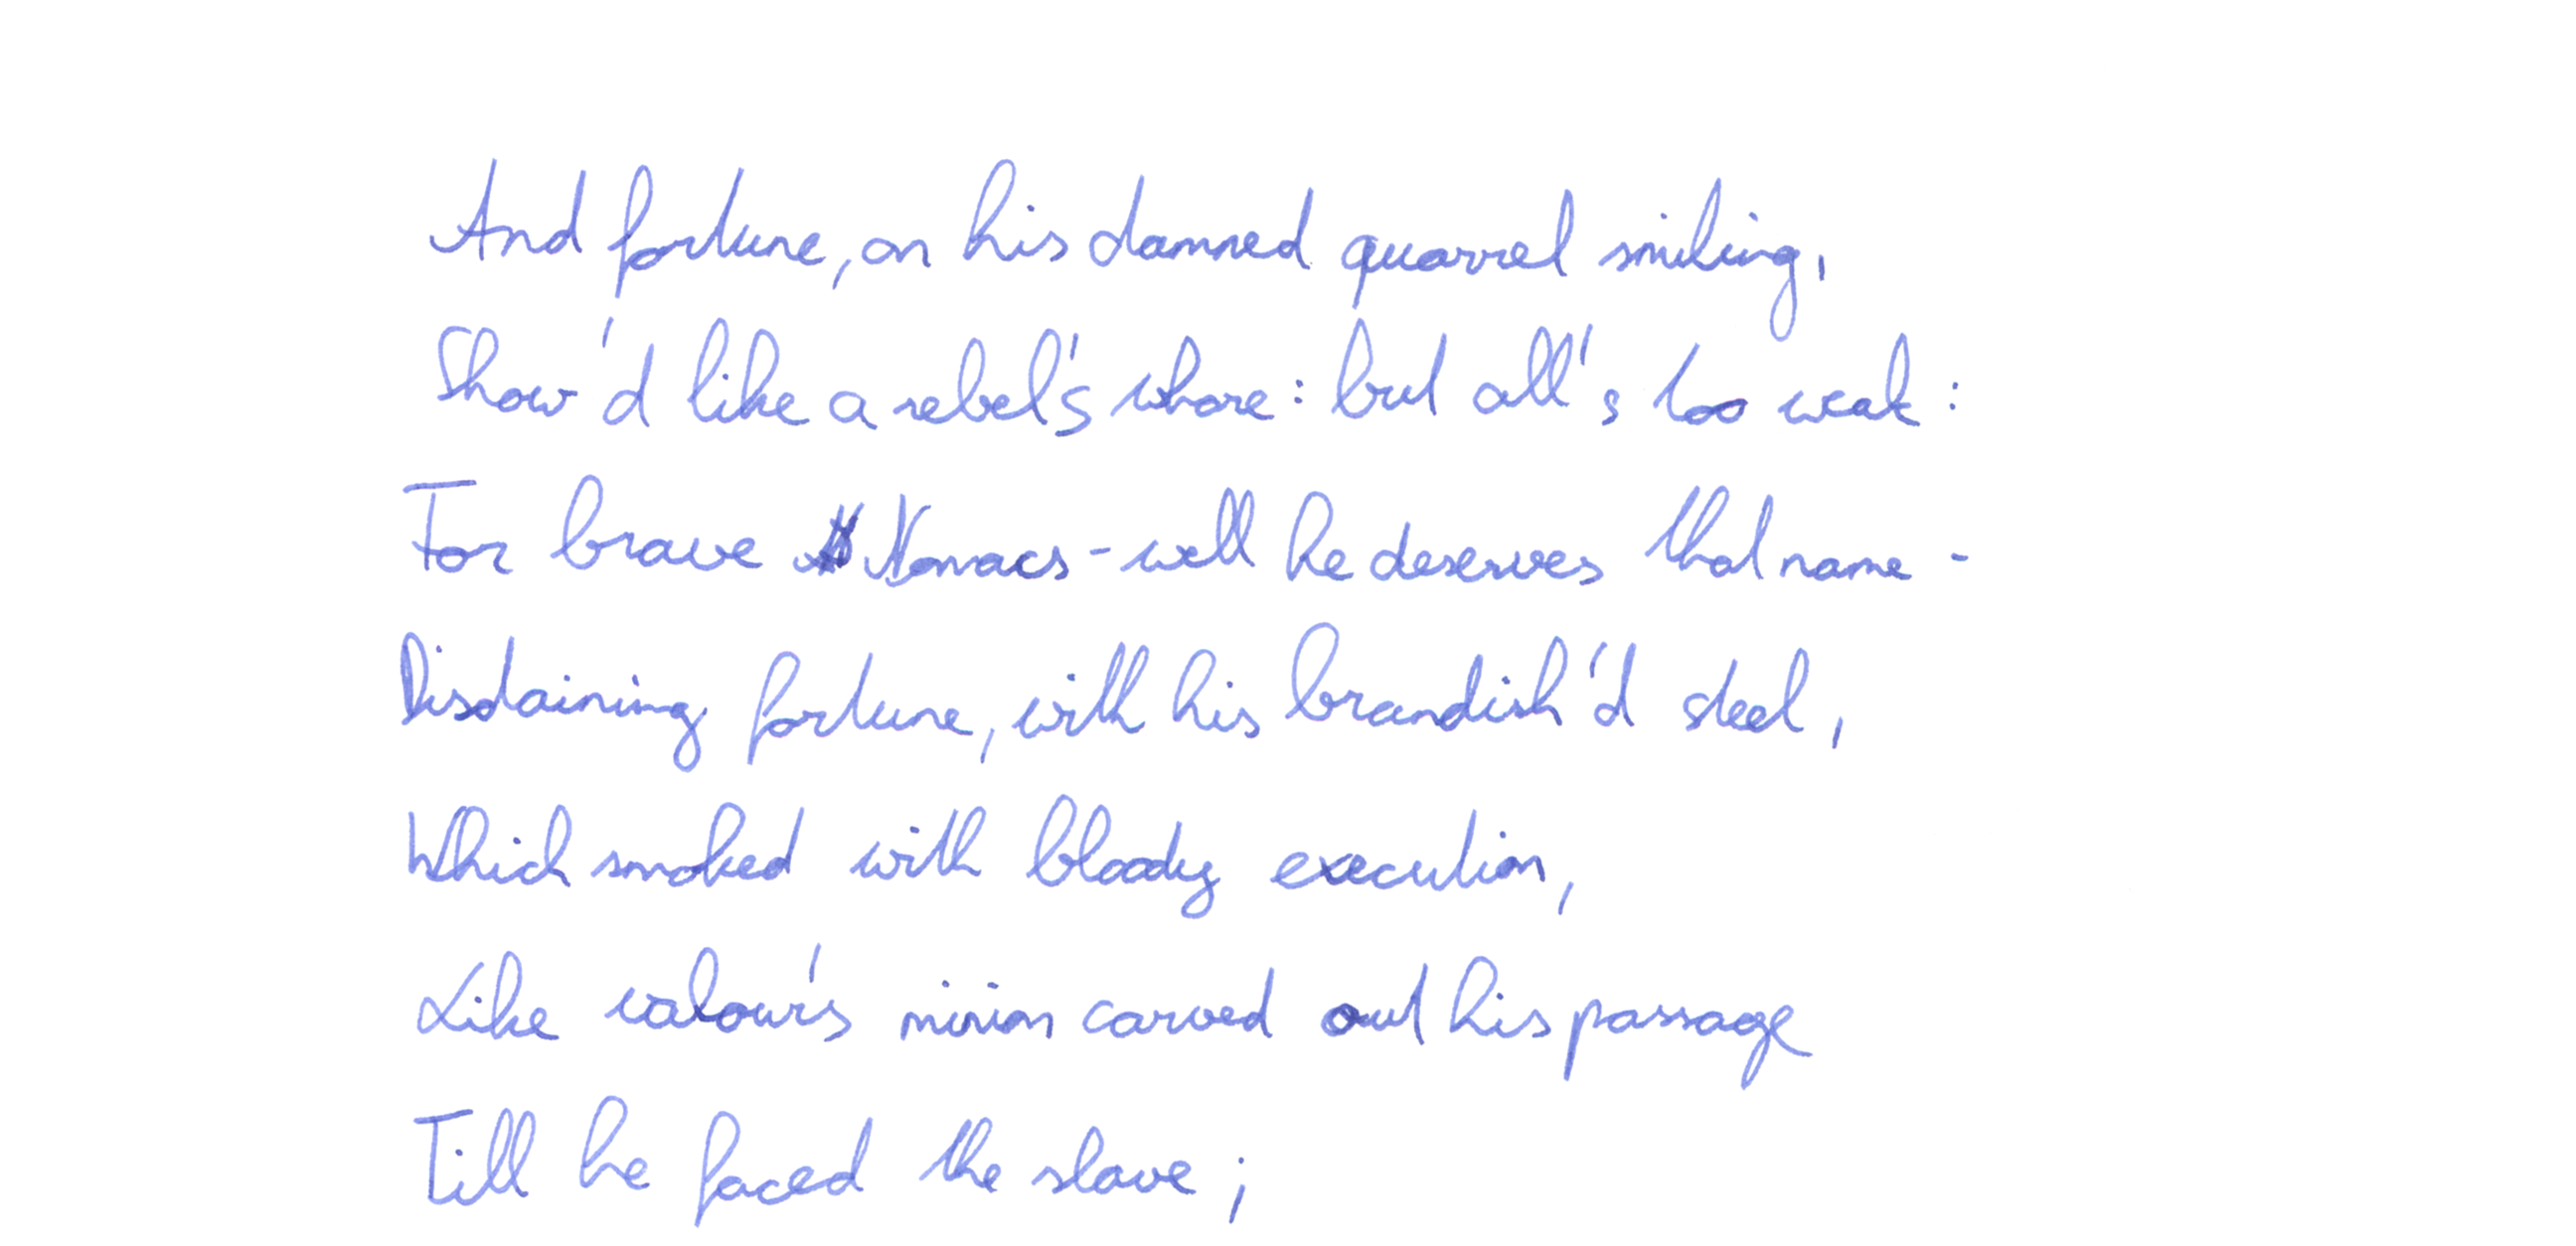 And fortune, on his damned quarrel smiling,
Show'd like a rebel's whore: but all's too weak:
For brave Kovacs - well he deserves that name -
Disdaining fortune, with his brandish'd steel,
Which smoked with bloody execution,
Like valour's minion carved out his passage
Till he faced the slave;